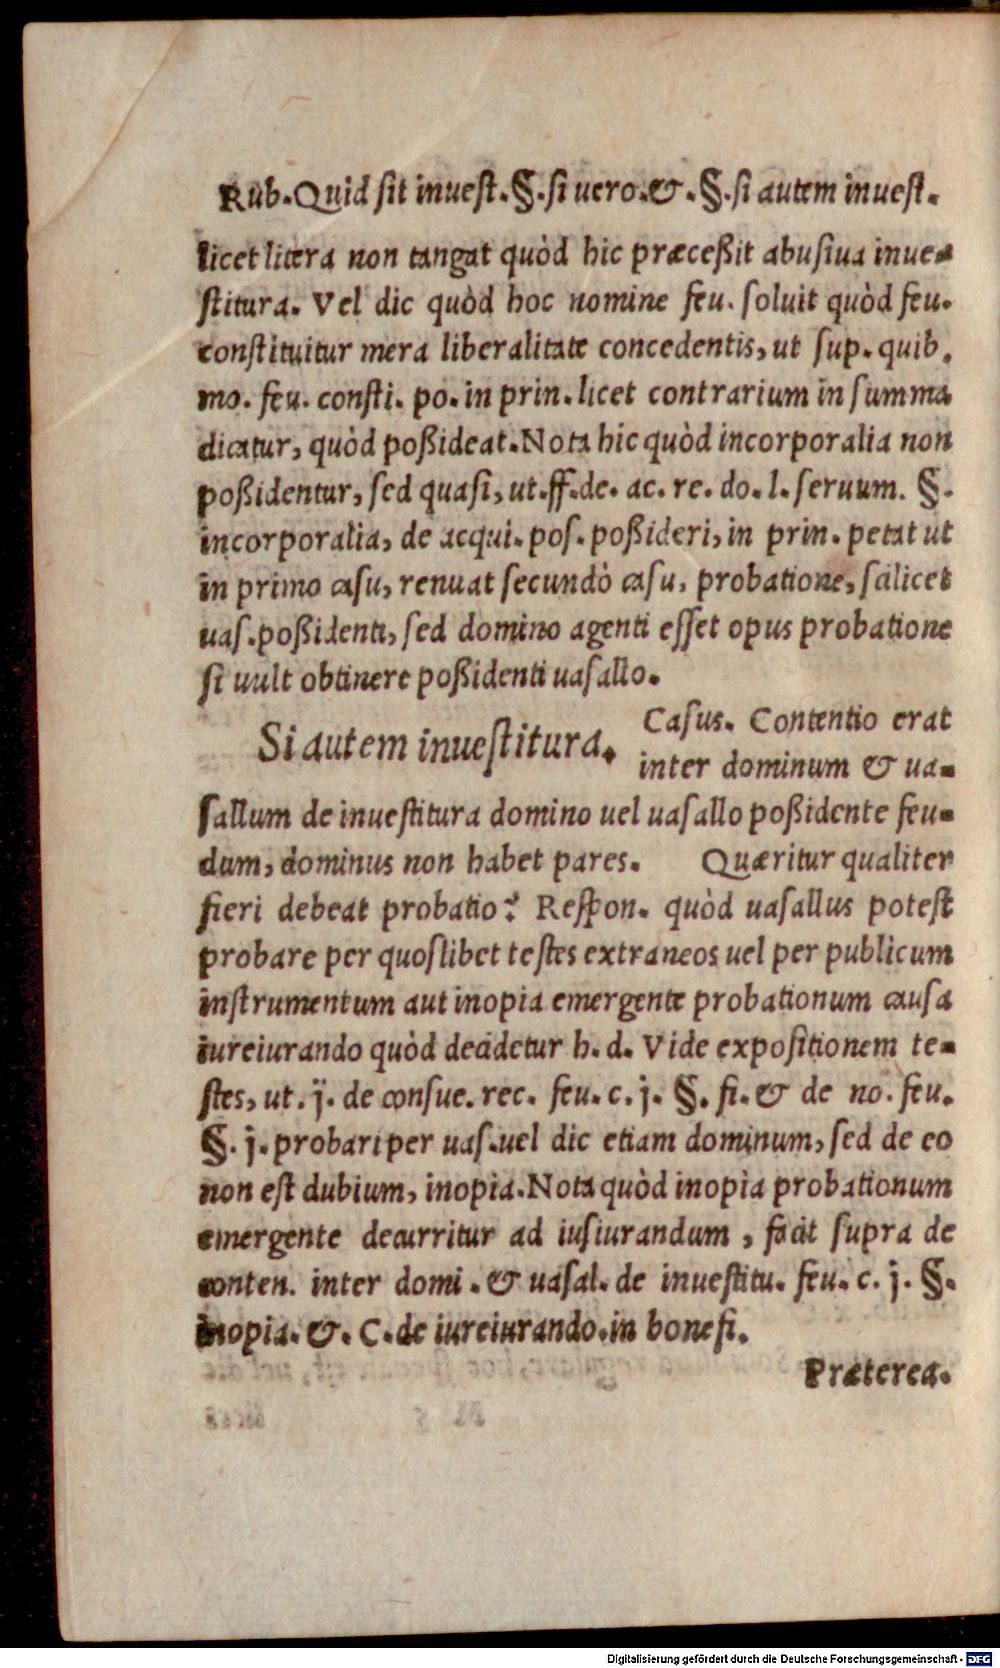 Rub. Quid sit inuest. §. si uero. &. §. si autem inuest.
licet litera non tangat quòd hic præceßit abusiua inue-
stitura. Vel dic quòd hoc nomine feu. soluit quòd feu.
constituitur mera liberalitate concedentis, ut sup. quib.
mo. feu. consti. po. in prin. licet contrarium in summa
dicatur, quòd poßideat. Nota hic quòd incorporalia non
poßidentur, sed quasi, ut. ff. de. ac. re. do. l. seruum. §.
incorporalia, de acqui. pos. poßideri, in prin. petat ut
in primo casu, renuat secundò casu, probatione, scilicet
uas. poßidenti, sed domino agenti esset opus probatione
si uult obtinere poßidenti uasallo.
Si autem inuestitura. Casus. Contentio erat
inter dominum & ua-
sallum de inuestitura domino uel uasallo poßidente feu-
dum, dominus non habet pares. Quæritur qualiter
fieri debeat probatio? Respon. quòd uasallus potest
probare per quoslibet testes extraneos uel per publicum
instrumentum aut inopia emergente probationum causa
iureiurando quòd decidetur h. d. Vide expositionem te-
stes, ut. j. de consue. rec. feu. c. j. §. fi. & de no. feu.
§. j. probari per uas. uel dic etiam dominum, sed de eo
non est dubium, inopia. Nota quòd inopia probationum
emergente decurritur ad iusiurandum, facit supra de
conten. inter domi. & uasal. de inuestitu. feu. c. j. §.
inopia. &. C. de iureiurando. in bonefi.
Præterea.
Digitalisierung gefördert durch die Deutsche Forschungsgemeinschaft - DFG